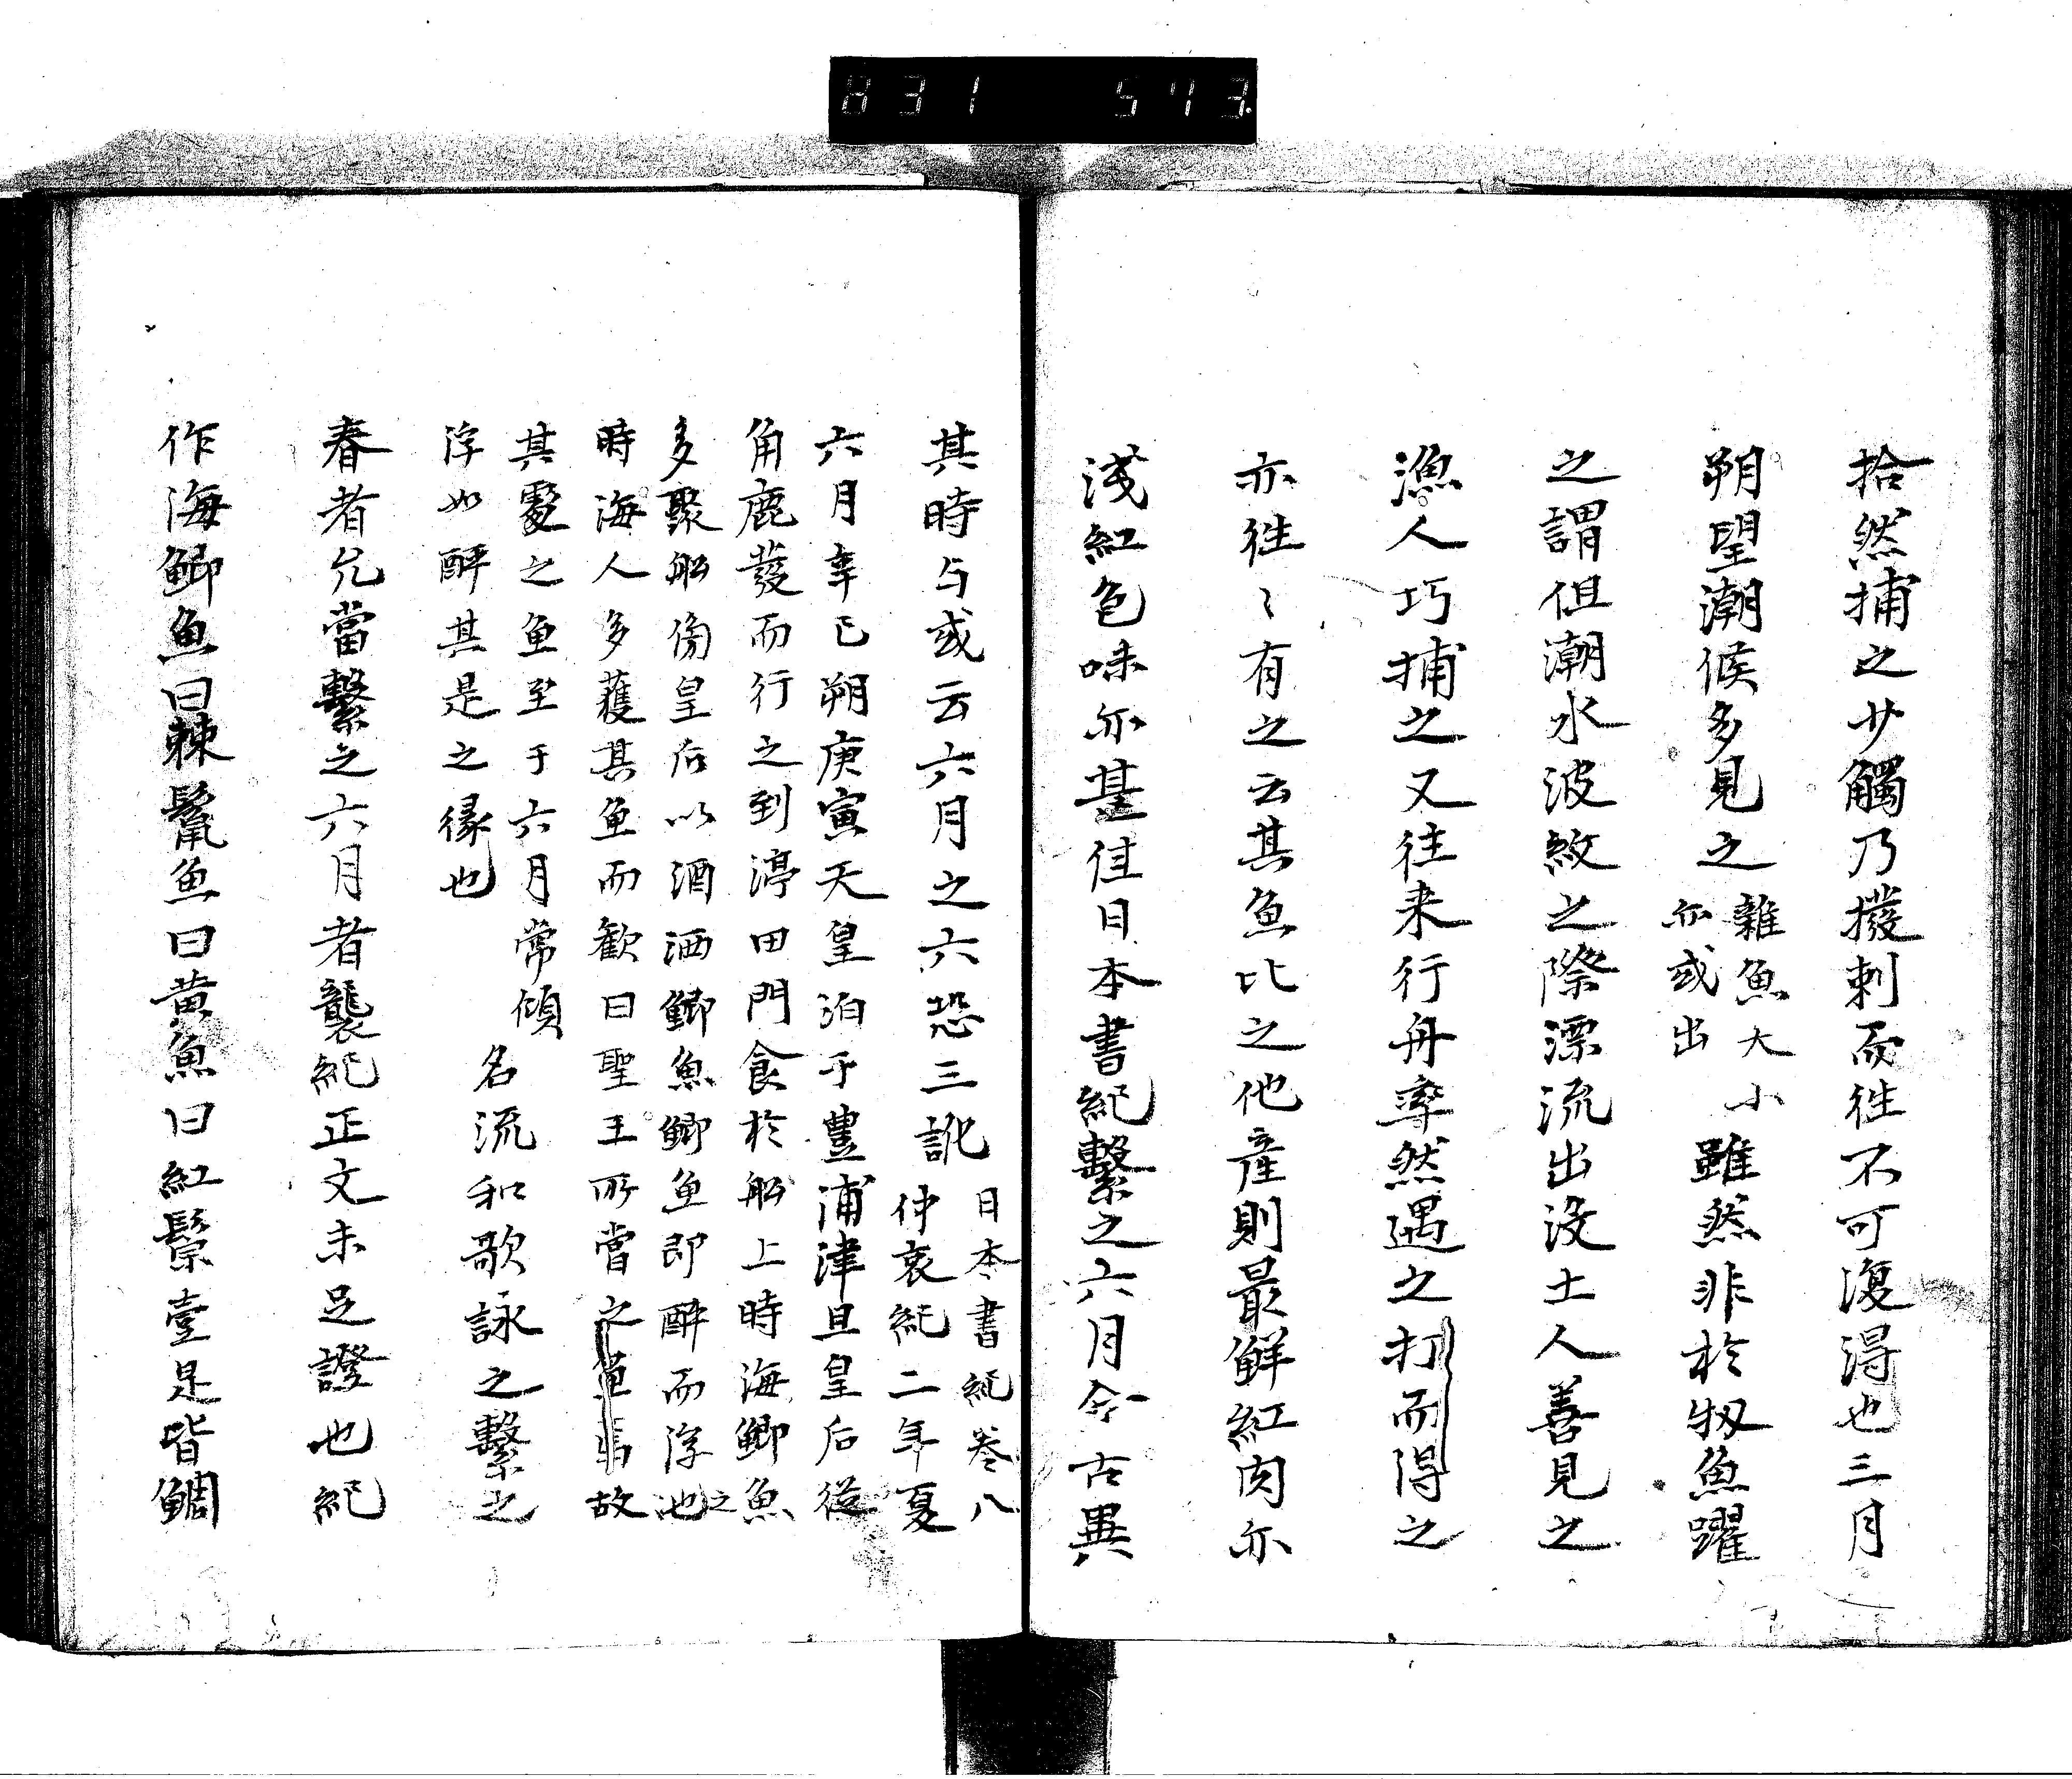 831 573
拾然捕之少觸乃撥刺而徃不可復得也三月
朔望潮候多見之
雜魚大小
亦或出
雖然非於牣魚躍
之謂但潮水波紋之際漂流出没土人善見之
漁人巧捕之又往来行舟率然遇之打而得之
亦徃〻有之云其魚比之他産則最鮮紅肉亦
淺紅色味亦甚佳日本書紀繫之六月今古異
其時与或云六月之六恐三訛
日本書紀巻八
仲哀紀二年夏
六月辛巳朔庚寅天皇泊于豊浦津且皇后従
角鹿發而行之到渟田門食於船上時海鯽魚
多聚船傍皇后以酒洒鯽魚鯽魚即醉而浮之也
時海人多獲其魚而歓曰聖王所嘗之魚焉故
其處之魚至于六月常傾
浮如醉其是之縁也
名流和歌詠之繫之
春者允當繫之六月者襲紀正文未足證也紀
作海鯽魚曰棘鬣魚曰黄魚曰紅鬃壹是皆鯛